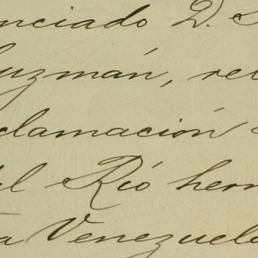 nciado D.
uzmán, re
clamación
l Río her
a Venezuel